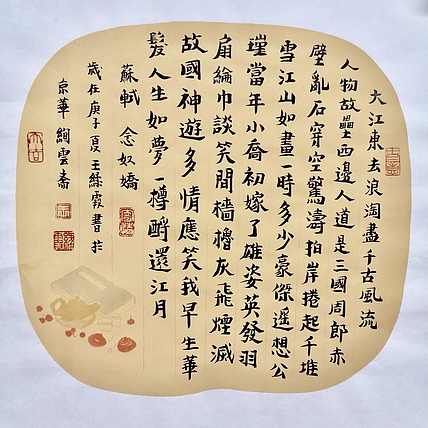 大江東去浪淘盡千古風流
人物故壘西邊人道是三國周郎赤
壁亂石穿空驚濤拍岸捲起千堆
雪江山如畫一時多少豪傑遙想公
瑾當年小喬初嫁了雄姿英發羽
扇綸巾談笑間檣櫓灰飛煙滅
故國神遊多情應笑我早生華
髮人生如夢一樽酹還江月
蘇軾 念奴嬌
歲在庚子夏王絲霞書於
京華絢雲齋